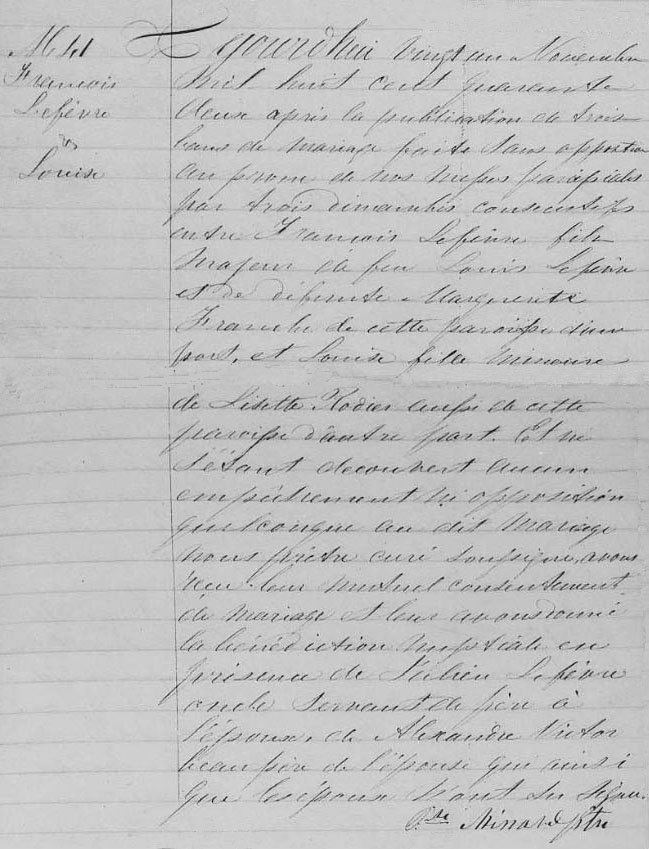 M 41
François
Lefèvre
&
Louise
Aujourdhui vingt un Novembre
mil huit cent quarante
deux après la publication de trois
bans de mariage faite sans opposition
au prone de nos messes paroissiales
par trois dimanches consecutifs
entre François Lefèvre fils
majeur de feu Louis Lefèvre
et de défunte Marguerite
Franche de cette paroisse d'une
part, et Louise fille mineure
de Lisette Rodier aussi de cette
paroisse d'autre part. Et ne
s'étant decouvert aucun
empêchement ni opposition
quelconque au dit mariage
nous prêtre curé soussigné, avons
reçu leur mutuel consentement
de mariage et leur avons donné
la bénédiction nuptiale en
présence de Julien Lefèvre
oncle servant de père à
l'époux, de Alexandre Victor
beau père de l'épouse qui ainsi
que les époux n'ont su signer.
Minard ptre